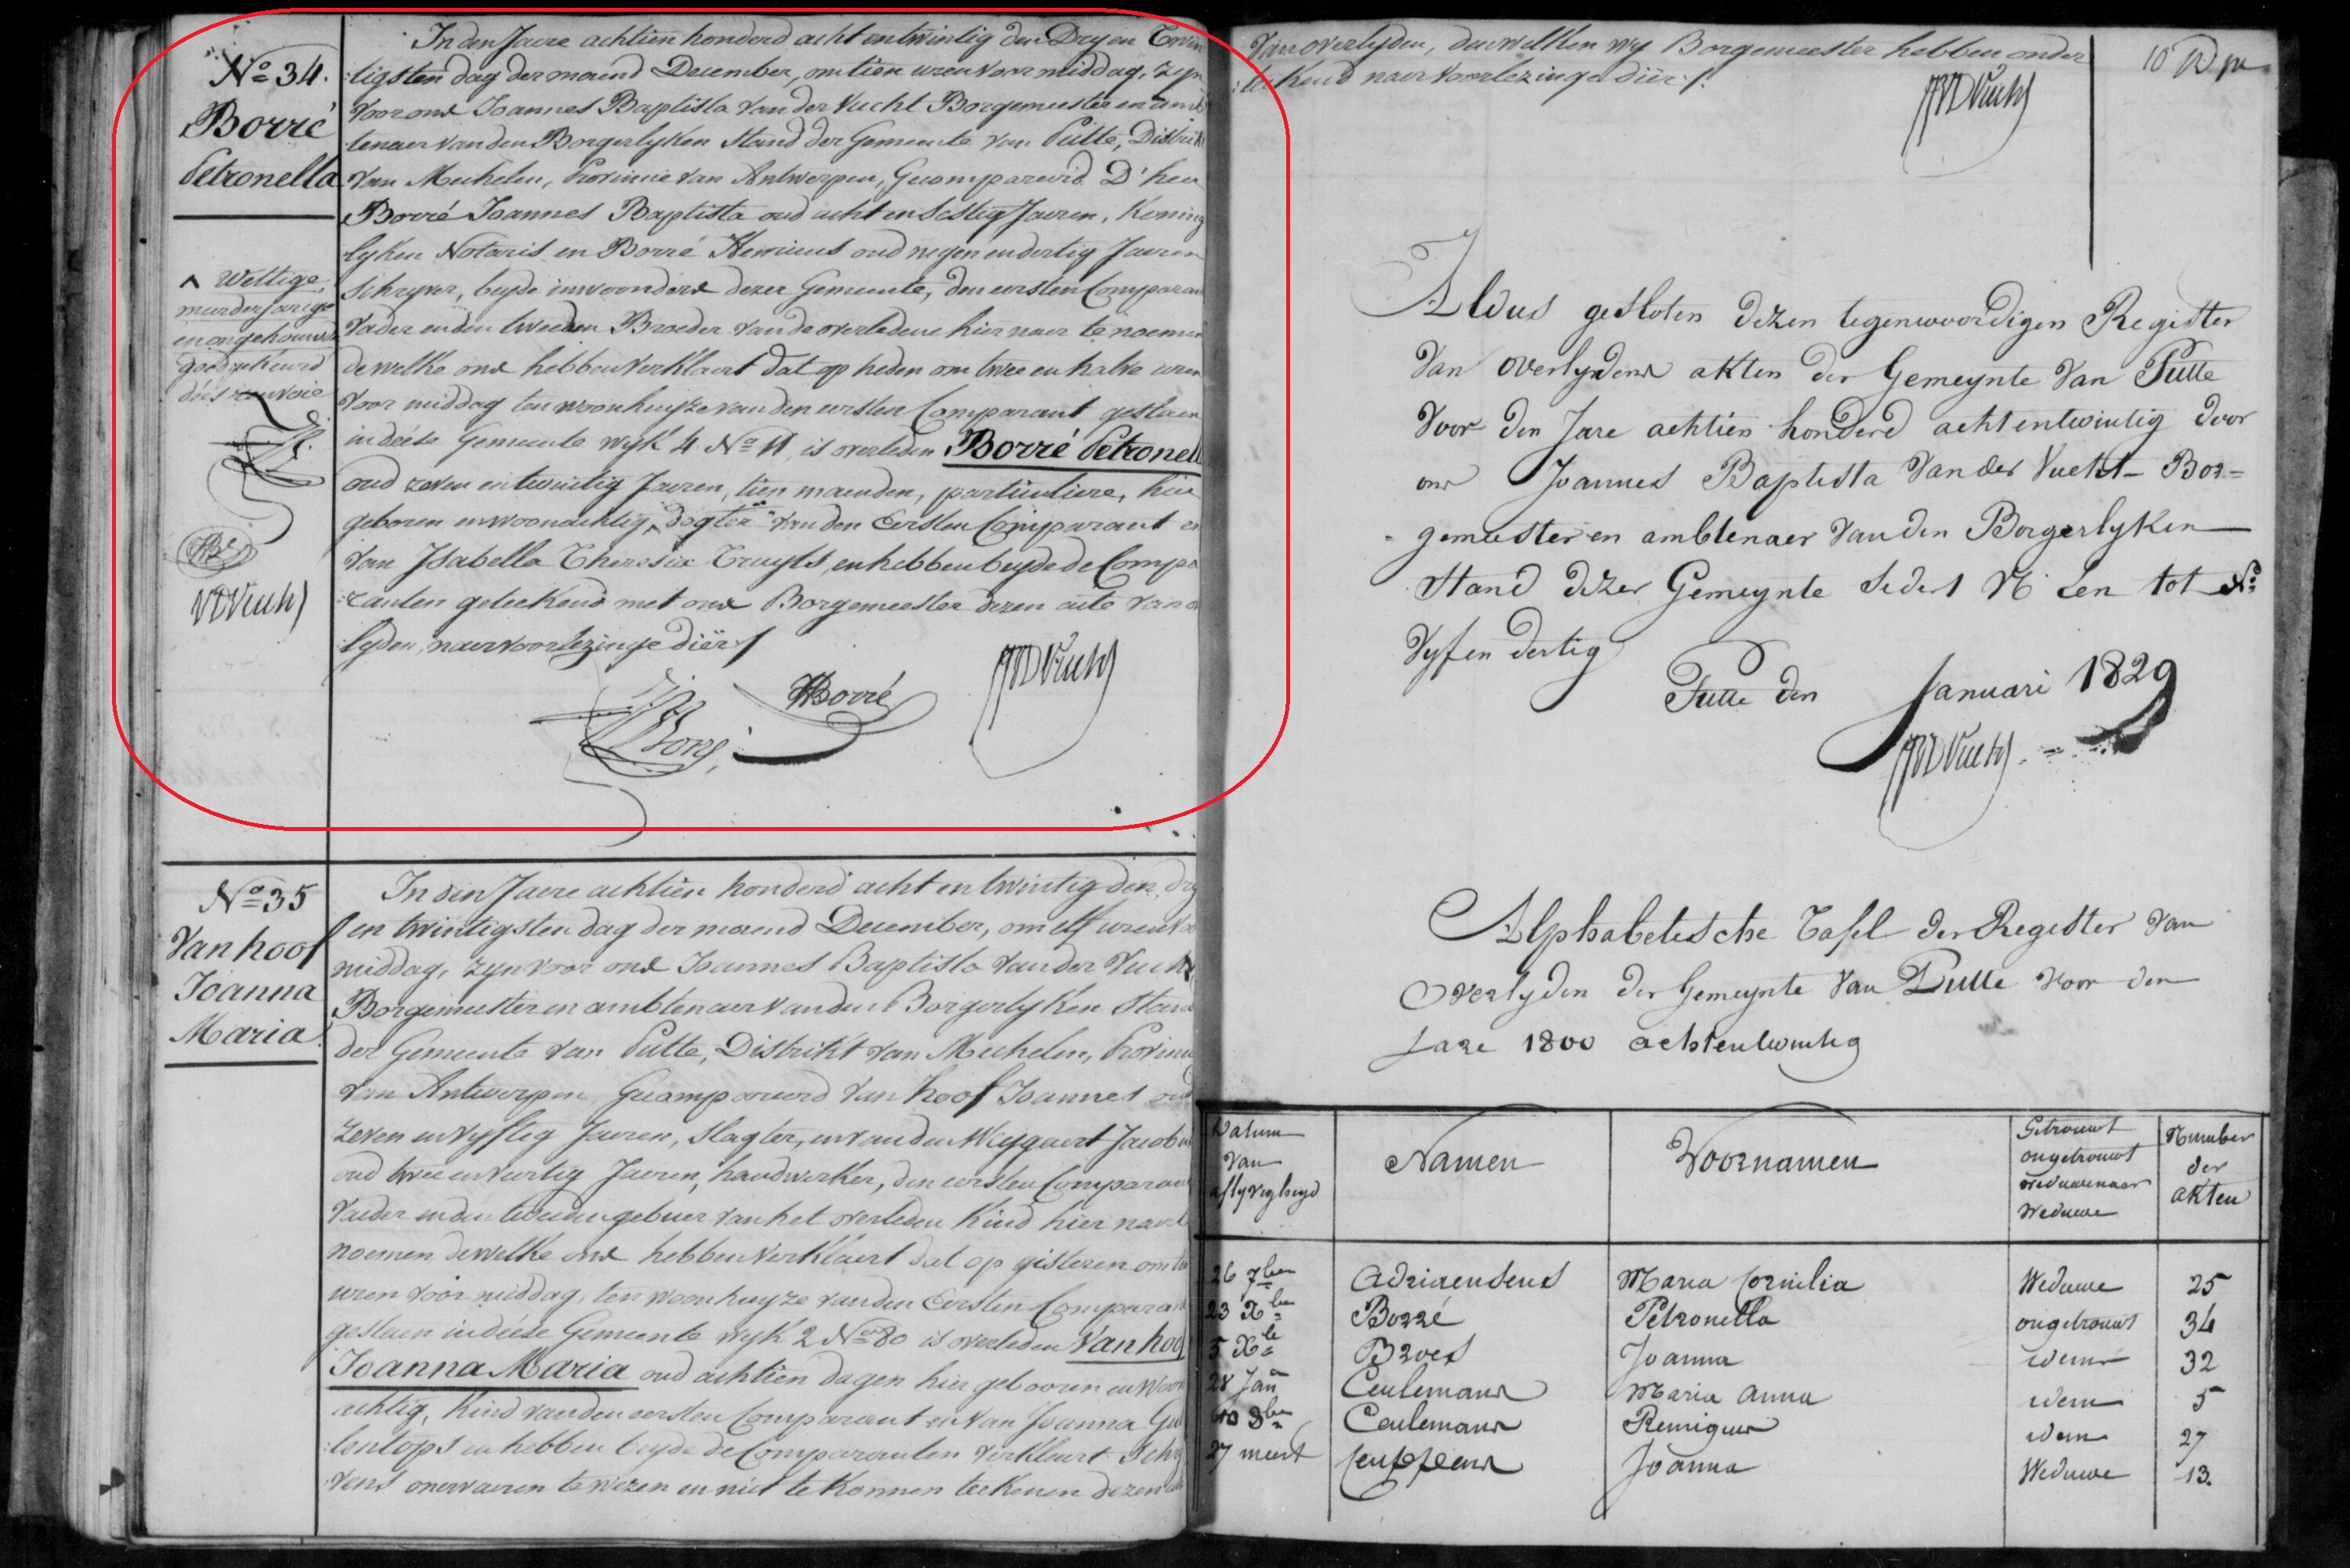 No 34.
Borré
Petronella
^ Wettige,
meerderjarige
en ongehouwd
goedgekeurd
dees renvoie
VDVucht
In den Jaere achtien honderd acht en twintig den Dry en Twin
:tigsten dag der maend December, om tien uren voor middag, zyn
voor ons Joannes Baptista Van der Vucht Borgemeester en amb
tenaer van den Borgerlyken Stand der Gemeente van Putte, Distrik
van Mechelen, Provincie van Antwerpen, Gecompareerd D'heer
Borré Joannes Baptista oud acht en sestig Jaeren, Koning
lyken Notaris en Borré Henricus oud negen en dertig Jaeren
Schryver, beyde inwoonders dezer Gemeente, den eersten Comparan
vader en den tweeden Broeder van de overledene hier naer te noemen
dewelke ons hebben verklaert dat op heden om twee en halve uren
voor middag ten woonhuyze van den eersten Comparant gestaen
in deése Gemeente wyk 4 No 11, is overleden Borré Petronell
oud zeven en twintig Jaeren, tien maenden, particuliere, hier
geboren en woonachtig, ^ dogter van den Eersten Comparant en
van Isabella Theresia Truyts, en hebben beyde de Compa
:ranten geteekend met ons Borgemeester dezen acte van o
lyden, naer voorlezinge diër /
Borré
JBVDVucht
No 35
Van hoof
Joanna
Maria.
In den Jaere achtien honderd acht en twintig den dry
en twintigsten dag der maend December, om elf uren vo
middag, zyn voor ons Joannes Baptista Van der Vucht
Borgemeester en ambtenaer van den Borgerlyken Stand
der Gemeente van Putte, Distrikt van Mechelen, Provinc
van Antwerpen, Gecompareerd Van hoof Joannes oud
zeven en vyftig Jaeren, slagter, en van den Wyngaert Jacobu
oud twee en veertig Jaeren, handwerker, den eersten Comparan
vaeder en den tweeden gebuer van het overleden Kind hier naer t
noemen dewelke ons hebben verklaert dat op gisteren om
uren voor middag, ten woonhuyze van den Eersten Comparant
gestaen in deése Gemeente wyk 2 No 80 is overleden Van hoof
Joanna Maria oud achtien dagen hier gebooren en woon
achtig, Kind van den eersten Comparant en van Joanna
en hebben beyde de Comparanten verklaert Schry
vens onervaeren te wezen en niet te Konnen teekenen dezen
Van overlyden, dewelken wy Borgemeester hebben onder
:teekend naer voorlezinge diër /.
JBVDVucht
Aldus gesloten dezen tegenwoordigen Register
Van overlydens akten der Gemeynte Van Putte
Voor den Jare achtien honderd achtentwintig door
ons Joannes Baptista Van der Vucht Bor=
gemeester en ambtenaer van den Borgerlyken
Stand dezer Gemeynte sedert N Een tot No
Vyf en dertig
Putte den Januari 1829
JBVDVucht
Alphabetische Tafel der Register van
Overlyden der Gemeynte Van Putte voor den
Jare 1800 achtentwintig
Datum van aflyvigheyd | Namen | Voornamen | Getrouwt ongetrouwt weduwenaar Weduwe | Number der akten
26 7ber | Adriaensens | Maria Cornelia | Weduwe | 25
23 Xber | Borré | Petronella | ongetrouwt | 34
5 Xbe | Broes | Joanna | idem | 32
28 Jan | Ceulemans | Maria Anna | idem | 5
10 8ber | Ceulemans | Remigius | idem | 27
27 meert | Joanna | Weduwe | 13.